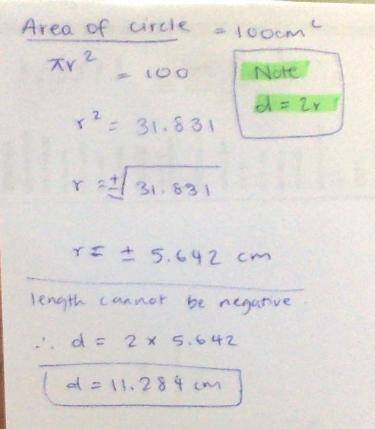 Area of circle = 100cm²
πr² = 100
Note
d = 2r
r² = 31.831
r = ±√31.831
r = ± 5.642 cm
length cannot be negative.
∴ d = 2 × 5.642
d = 11.284 cm